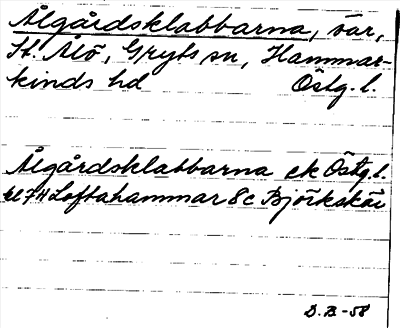 Ålgårdsklabbarna, öar,
St. Ålö, Gryts sn, Hammar-
kinds hd Östg. l.
Ålgårdsklabbarna ek Östg. l.
bl 74 Loftahammar 8c Björkskär
D. B-58